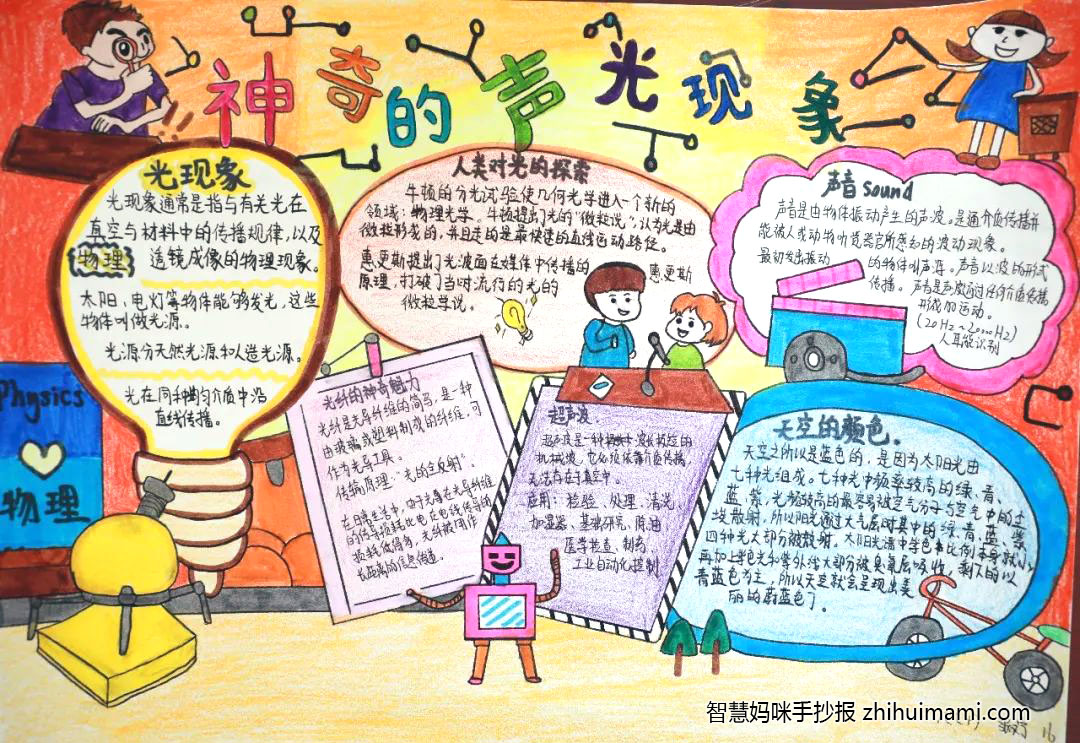 神奇的声光现象
光现象
光现象通常是指与有关光在
真空与材料中的传播规律,以及
物理 透镜成像的物理现象。
太阳、电灯等物体能够发光,这些
物体叫做光源。
光源分天然光源和人造光源。
光在同种均匀介质中沿
直线传播。
人类对光的探索
牛顿的分光试验使几何光学进入一个新的
领域:物理光学。牛顿提出光的“微粒说”,认为光是由
微粒形成的,并且走的是最快速的直线运动路径。
惠更斯提出了光波面在媒体中传播的 惠更斯
原理,打破了当时流行的光的
微粒学说。
声音 Sound
声音是由物体振动产生的声波。是通介质传播并
能被人或动物听觉器官所感知的波动现象。
最初发出振动 的物体叫声源。声音以波的形式
传播。声音是声波通过任何介质传播
形成的运动。
(20Hz~20000Hz)
人耳能识别
Physics
物理
光纤的神奇魅力
光纤是光导纤维的简写,是一种
由玻璃或塑料制成的纤维,可
作为光导工具。
传输原理:“光的全反射”。
在日常生活中,由于光在光导纤维
的传导损耗比电在电线传导的
损耗低得多,光纤被用作
长距离的信息传递。
超声波.
超声波是一种 波长极短的
机械波,它必须依靠介质传播,
无法存在于真空中。
应用:检验、处理、清洗、
加湿器、基础研究、除油
医学检查、制药、
工业自动化控制
天空的颜色。
天空之所以是蓝色的,是因为太阳光由
七种光组成。七种光中频率较高的绿、青、
蓝、紫,光频较高的最容易被空气分子与空气中的尘
埃散射,所以阳光通过大气层时其中的绿、青、蓝、紫
四种光大部分被散射。太阳光谱中紫色素比例本身就小,
再加上紫色光和紫外线大部分被臭氧层吸收,剩下的以
青蓝色为主,所以天空就会呈现出美
丽的蔚蓝色了。
智慧妈咪手抄报 zhihuimami.com